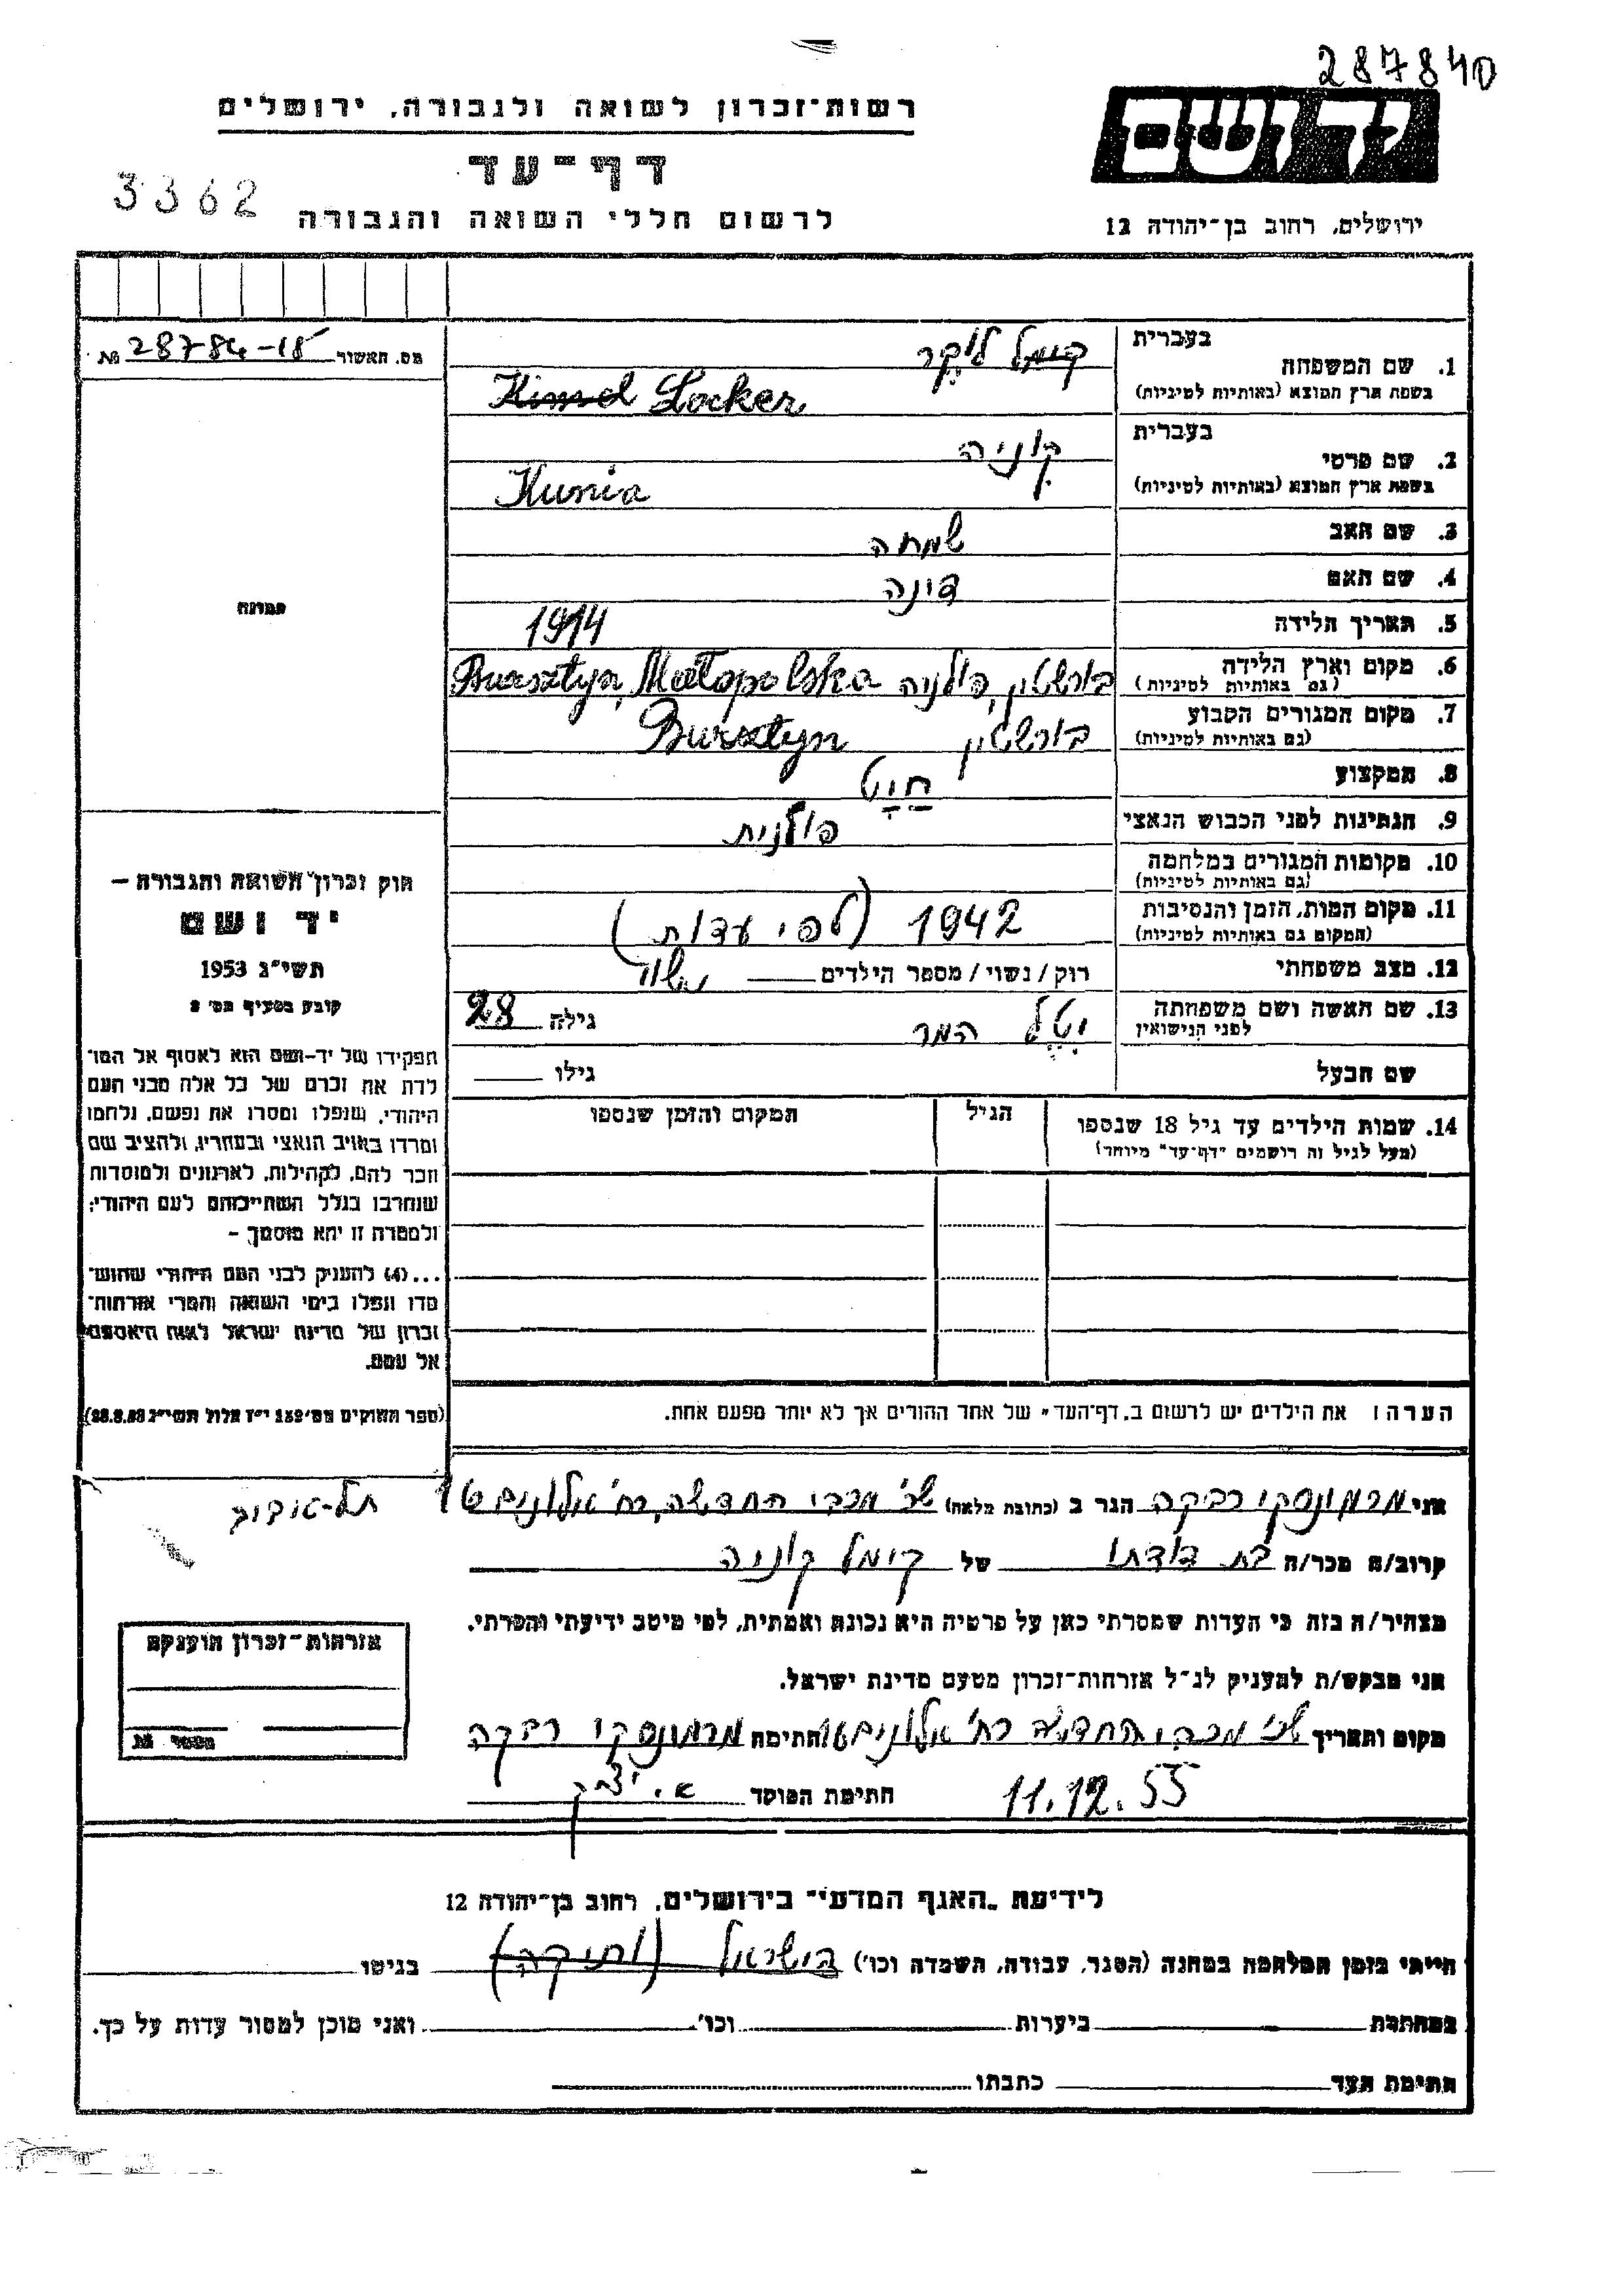 287840
רשות־זכרון לשואה ולגבורה, ירושלים
יד ושם
דף־עד
3362
לרשום חללי השואה והגבורה
ירושלים, רחוב בן־יהודה 12
מס. האשור 28784-18 №
1. שם המשפחה
בעברית קימל לוקר
בשפת ארץ המוצא (באותיות לטיניות) Kimel Locker
2. שם פרטי
בעברית קוניה
בשפת ארץ המוצא (באותיות לטיניות) Kunia
3. שם האב שמחה
4. שם האם דינה
5. תאריך הלידה 1914
6. מקום וארץ הלידה בורשטין, פולניה Bursztyn, Małopolska
(גם באותיות לטיניות)
7. מקום המגורים הקבוע בורשטין Bursztyn
(גם באותיות לטיניות)
8. המקצוע חיט
9. הנתינות לפני הכבוש הנאצי פולנית
10. מקומות המגורים במלחמה
(גם באותיות לטיניות)
11. מקום המות, הזמן והנסיבות 1942 (לפי עדות)
(המקום גם באותיות לטיניות)
12. מצב משפחתי רוק / נשוי / מספר הילדים נשוי
13. שם האשה ושם משפחתה יטל המר גילה 28
לפני הנישואין
שם הבעל גילו
14. שמות הילדים עד גיל 18 שנספו הגיל המקום והזמן שנספו
(מעל לגיל זה רושמים "דף־עד" מיוחד)
הערה: את הילדים יש לרשום ב„דף־העד" של אחד ההורים אך לא יותר מפעם אחת.
תמונה
חוק זכרון השואה והגבורה –
יד ושם
תשי"ג 1953
קובע בסעיף מס' 2
תפקידו של יד-ושם הוא לאסוף אל המו־
לדת את זכרם של כל אלה מבני העם
היהודי, שנפלו ומסרו את נפשם, נלחמו
ומרדו באויב הנאצי ובעוזריו, ולהציב שם
וזכר להם, לקהילות, לארגונים ולמוסדות
שנחרבו בגלל השתייכותם לעם היהודי;
ולמטרה זו יהא מוסמך –
...(4) להעניק לבני העם היהודי שהוש־
מדו ונפלו בימי השואה והמרי אזרחות־
זכרון של מדינת ישראל לאות היאספם
אל עמם.
(ספר החוקים מס' 132 י"ז אלול תשי"ג 28.8.53)
אני מרמונסקי רבקה הגר ב (כתובת מלאה) שכ' מכבי החדשה, רח' אלונים 16
תל-אביב
קרוב/ה מכר/ה בת דודתו של קימל קוניה
מצהיר/ה בזה כי העדות שמסרתי כאן על פרטיה היא נכונה ואמתית, לפי מיטב ידיעתי והכרתי.
אני מבקש/ת להעניק לנ"ל אזרחות־זכרון מטעם מדינת ישראל.
מקום ותאריך שכ' מכבי החדשה רח' אלונים 16 חתימה מרמונסקי רבקה
11.12.55 חתימת הפוקד
אזרחות־זכרון הוענקה
מספר №
לידיעת „האגף המדעי" בירושלים, רחוב בן־יהודה 12
הייתי בזמן המלחמה במחנה (הסגר, עבודה, השמדה וכו') בישראל (ותיקה) בגיטו
במחתרת ביערות וכו' ואני מוכן למסור עדות על כך.
חתימת העד כתבתו